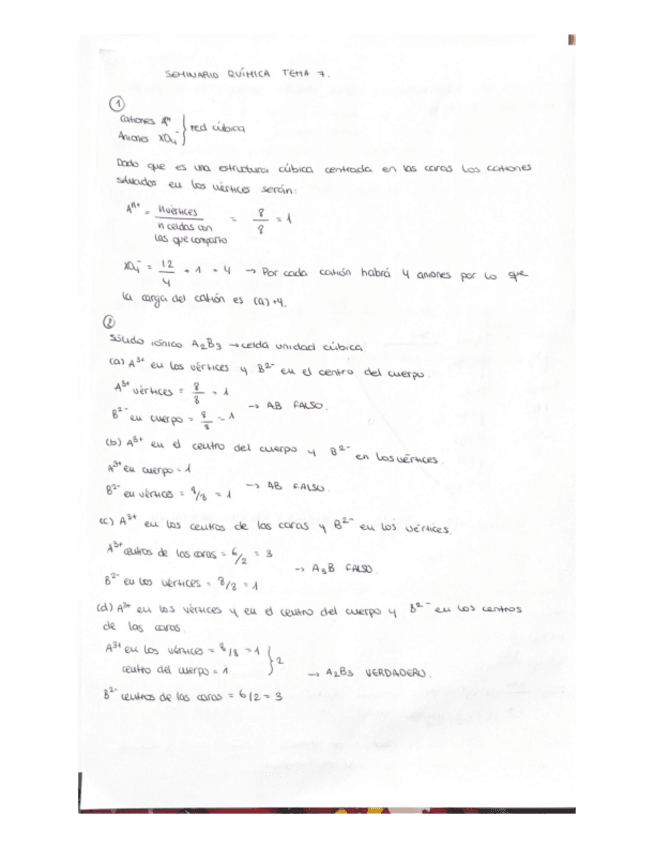 SEMINARIO QUÍMICA TEMA 7.
①
Cationes Aⁿ⁺ } red cúbica
Aniones XO₄⁻
Dado que es una estructura cúbica centrada en las caras los cationes
situados en los vértices serán:
Aⁿ⁺ = nvértices / n celdas con las que comparto = 8/8 = 1
XO₄⁻ = 12/4 + 1 = 4 → Por cada catión habrá 4 aniones por lo que
la carga del catión es (a)+4.
②
Sólido iónico A₂B₃ → celda unidad cúbica.
(a) A³⁺ en los vértices y B²⁻ en el centro del cuerpo.
A³⁺ vértices = 8/8 = 1
→ AB FALSO.
B²⁻ en cuerpo = 8/8 = 1
(b) A³⁺ en el centro del cuerpo y B²⁻ en los vértices.
A³⁺ en cuerpo = 1
→ AB FALSO
B²⁻ en vértices = 8/8 = 1
(c) A³⁺ en los centros de las caras y B²⁻ en los vértices.
A³⁺ centros de las caras = 6/2 = 3
→ A₃B FALSO.
B²⁻ en los vértices = 8/8 = 1
(d) A³⁺ en los vértices y en el centro del cuerpo y B²⁻ en los centros
de las caras.
A³⁺ en los vértices = 8/8 = 1
centro del cuerpo = 1 } 2
→ A₂B₃ VERDADERO.
B²⁻ centros de las caras = 6/2 = 3